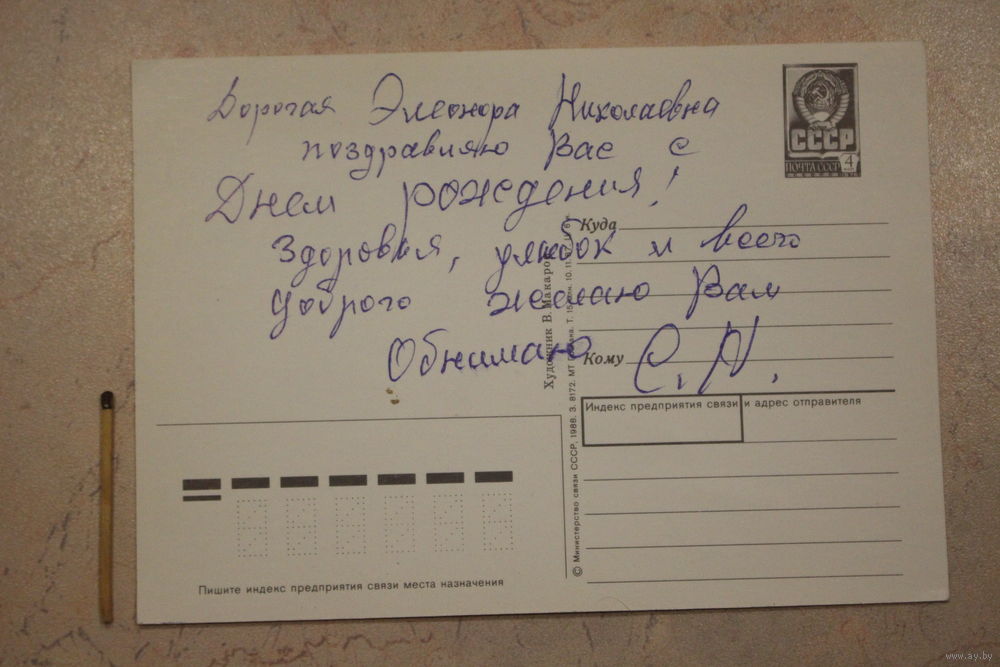 Дорогая Элеонора Николаевна
поздравляю Вас с
Днем рождения!
Здоровья, улыбок и всего
доброго желаю Вам
Обнимаю С. Н.
СССР
ПОЧТА СССР 4
Куда
Кому
Индекс предприятия связи и адрес отправителя
Художник В. Макаров
© Министерство связи СССР, 1988. З. 8172. МТ
Пишите индекс предприятия связи места назначения
www.ay.by